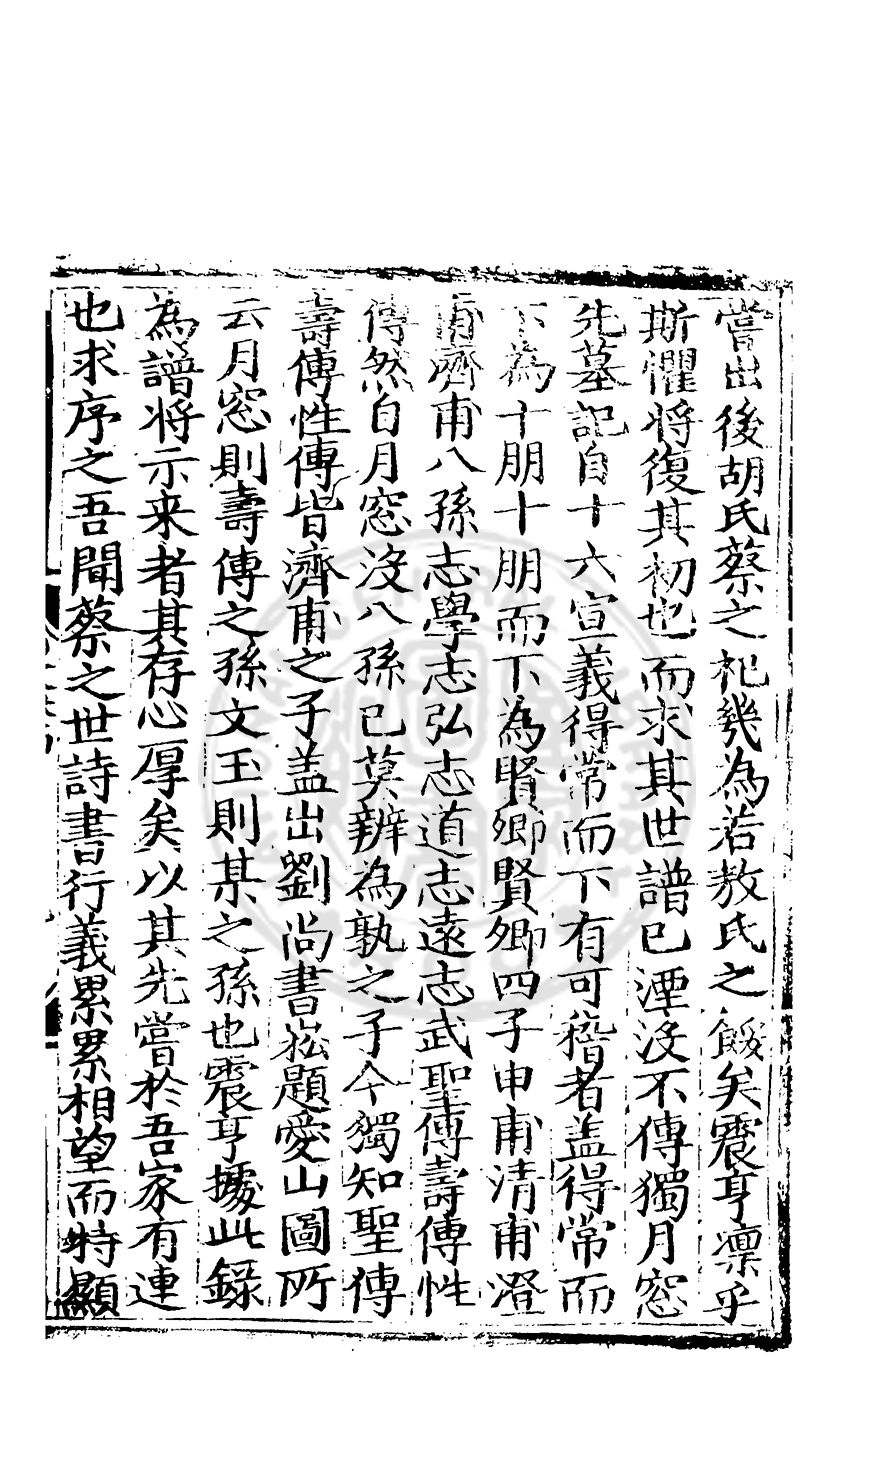 嘗出後胡氏蔡之杞幾為若敖氏之餒矣震亨凜乎
斯懼將復其初也而求其世譜已湮沒不傳獨月窓
先墓記自十六宣義得常而下有可稽者盖得常而
下為十朋十朋而下為賢卿賢卿四子申甫清甫澄
甫濟甫八孫志學志弘志道志遠志武聖傳壽傳性
傳然自月窓沒八孫已莫辨為孰之子今獨知聖傳
壽傳性傳皆濟甫之子盖出劉尚書崧題愛山圖所
云月窓則壽傳之孫文玉則某之孫也震亨據此錄
為譜將示来者其存心厚矣以其先嘗於吾家有連
也求序之吾聞蔡之世詩書行義累累相望而特顯